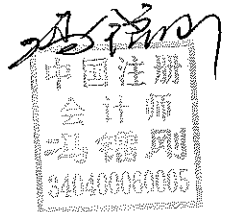 冯镏刚
中国注册
会计师
冯镏刚
340400060005